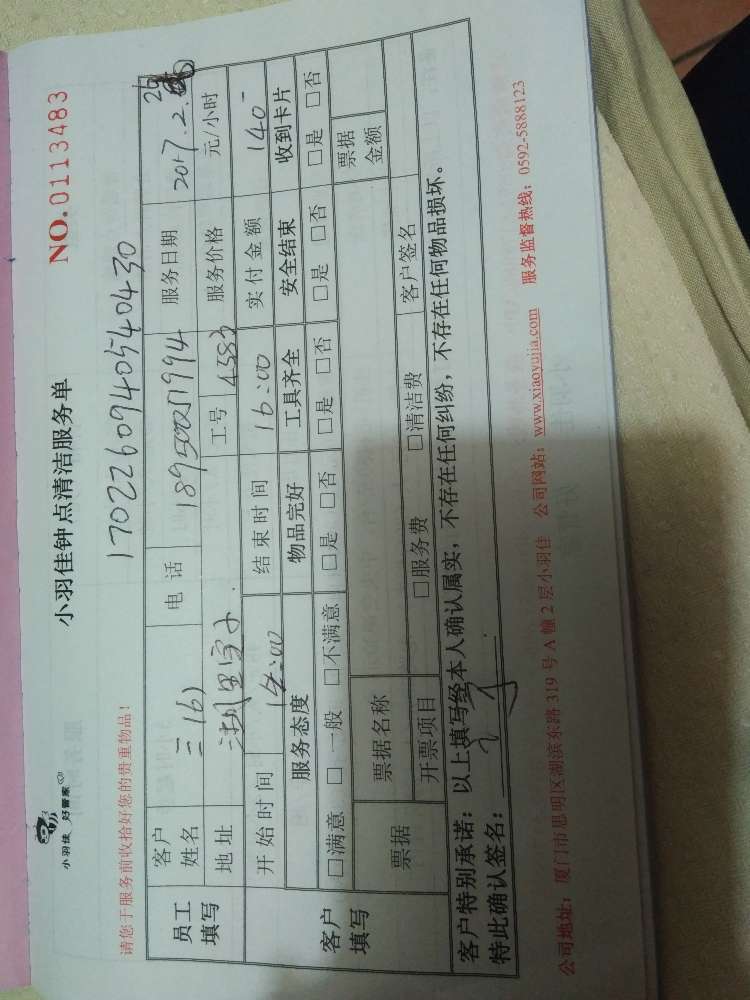 小羽佳 好管家
小羽佳钟点清洁服务单
NO.0113483
请您于服务前收拾好您的贵重物品!
1702260940540430
员工填写 客户姓名 电话 服务日期 2017.2.26
地址 工号 4583 服务价格 元/小时
客户填写 开始时间 14:00 结束时间 16:00 实付金额 140-
服务态度 物品完好 工具齐全 安全结束 收到卡片
□满意 □一般 □不满意 □是 □否 □是 □否 □是 □否 □是 □否
票据 票据名称 票据金额
开票项目 □服务费 □清洁费 客户签名
客户特别承诺:以上填写经本人确认属实,不存在任何纠纷,不存在任何物品损坏。
特此确认签名:
公司地址:厦门市思明区湖滨东路319号A幢2层小羽佳 公司网站:www.xiaoyujia.com 服务监督热线:0592-5888123